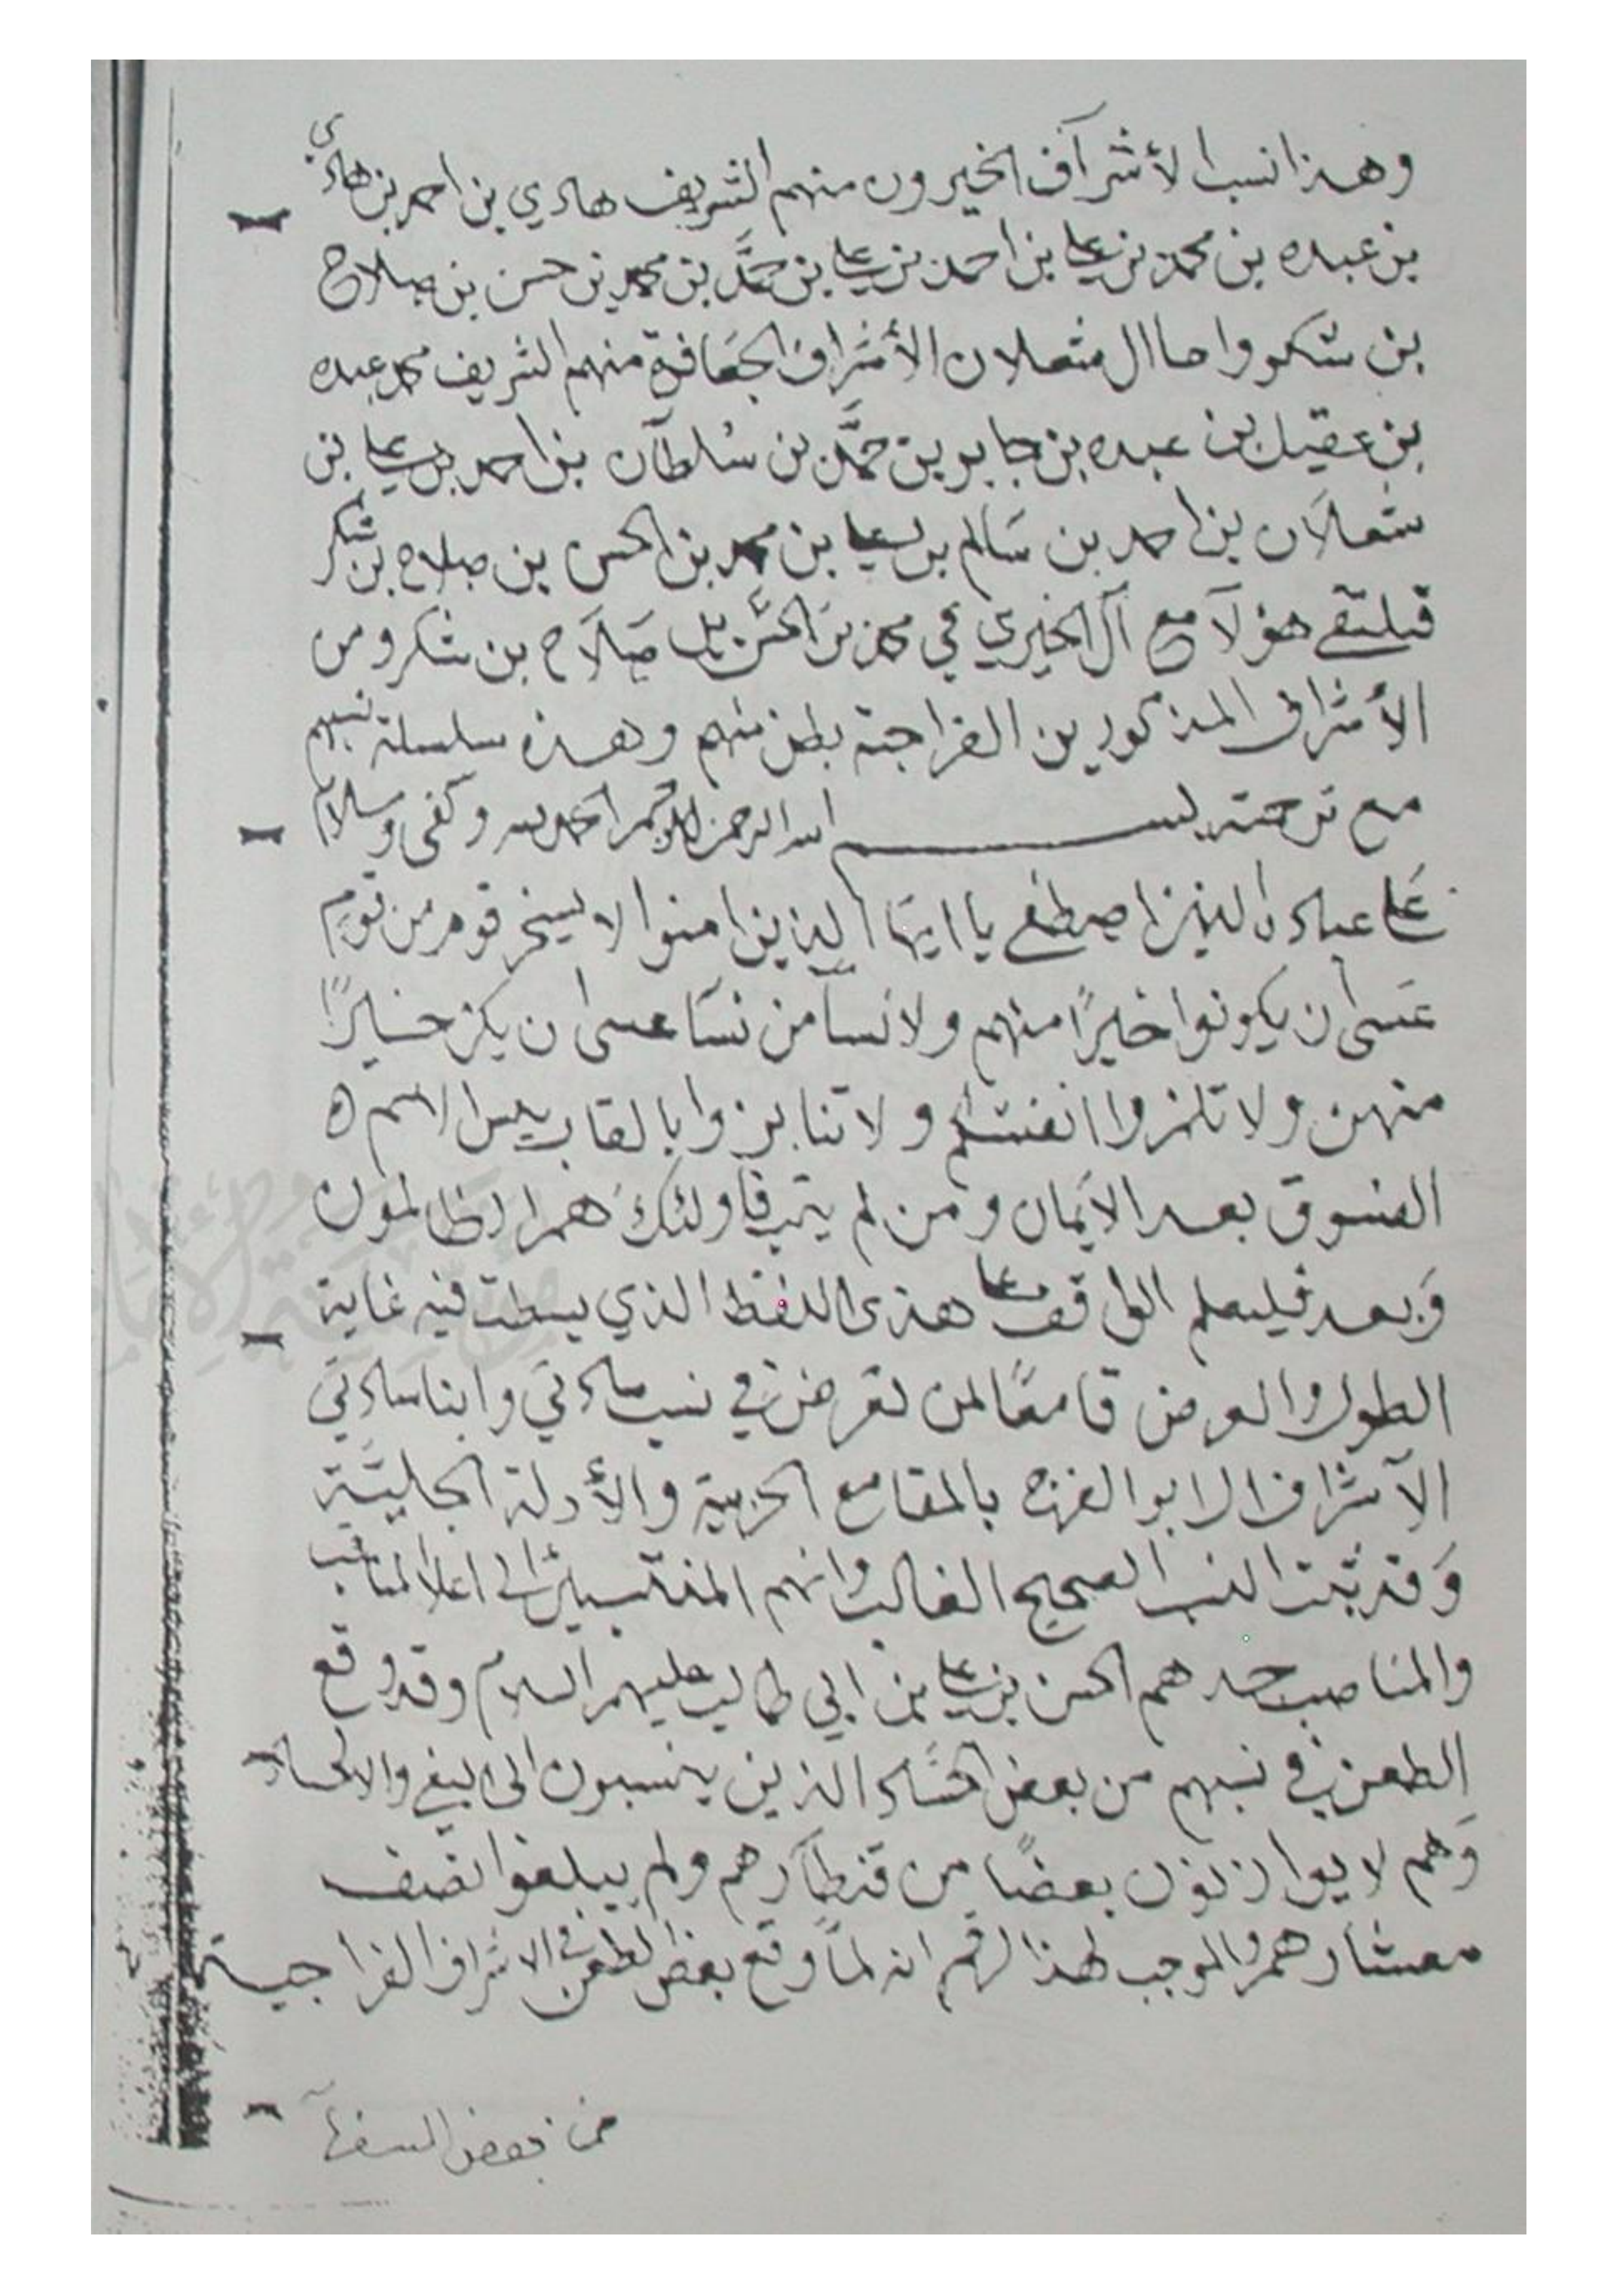 وهذا نسب الأشراف الخيرون منهم الشريف هادي بن احمد بن هادي
بن عبده بن محمد بن علي بن احمد بن علي بن حمَّد بن محمد بن حسن بن صلاح
بن شكر واما ال مثعلان الأشراف الجعافرة منهم الشريف محمد عبده
بن عقيل بن عبده بن جابر بن حمَّد بن سُلطآن بن احمد بن علي بن
مثعلان بن احمد بن سَالم بن علي بن محمد بن الحسن بن صلاح بن شكر
فيلتقي هؤلآ مع آل الخيري في محمد بن الحسن بن صَلاَح بن شكر ومن
الأشراف المذكورين الفراجة بطن منهم وهذه سلسلة نسبهم
مع ترجمته بسم الله الرحمن الرحيم الحمد لله وكفى وسلام
على عباده الذين اصطفى يا ايها الذين امنوا لا يسخر قوم من قوم
عَسى ان يكونوا خيرًا منهم ولا نسآ من نسَا عسى ان يكن خيرًا
منهن ولا تلمزوا انفسكم ولا تنابزوا بالقاب بيس الاسم ه
الفسوق بعد الايمان ومن لم يتب فاولئكَ هم الظالمون
وَبعد فليعلم الواقف على هذى اللفظ الذي بسطت فيه غاية
الطول والعرض قامعًا لمن تعرض في نسب سادتي وابنا سادتي
الآشراف ال ابو الفرج بالمقامع الحربية والأدلة الجليَّة
وَقد ثبت النسب الصحيح الغالب وانهم المنتسبين الى اعلا المناسب
والمناصب جدهم الحسن بن علي بن ابي طالب عليهم السلام وقد وقع
الطعن في نسبهم من بعض الحسَّاد الذين ينسبون الى البغي والالحاد
وَهم لا يوازنون بعضًا من قنطآرهم ولم يبلغوا نصف
معشارهم والموجب لهذا الرقم انه لمَّا وقع بعض الطعن في الاشراف الفراجية
من بعض السفهآ